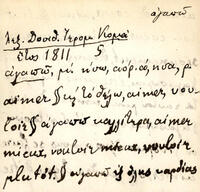 ἀγαπῶ
Λεξ. Δοσιθ. Ἱερομ. Κομᾶ
Ἔτος 1811 5
ἀγαπῶ, μὲ ησω, aor. α, ησα, ρ.
aimer § καὶ τὸ θέλω, aimer, vou-
loir § ἀγαπῶ καλλίτερα, aimer
mieux, vouloir mieux, vouloir
plutôt § ἀγαπῶ ἐξ ὅλης καρδίας